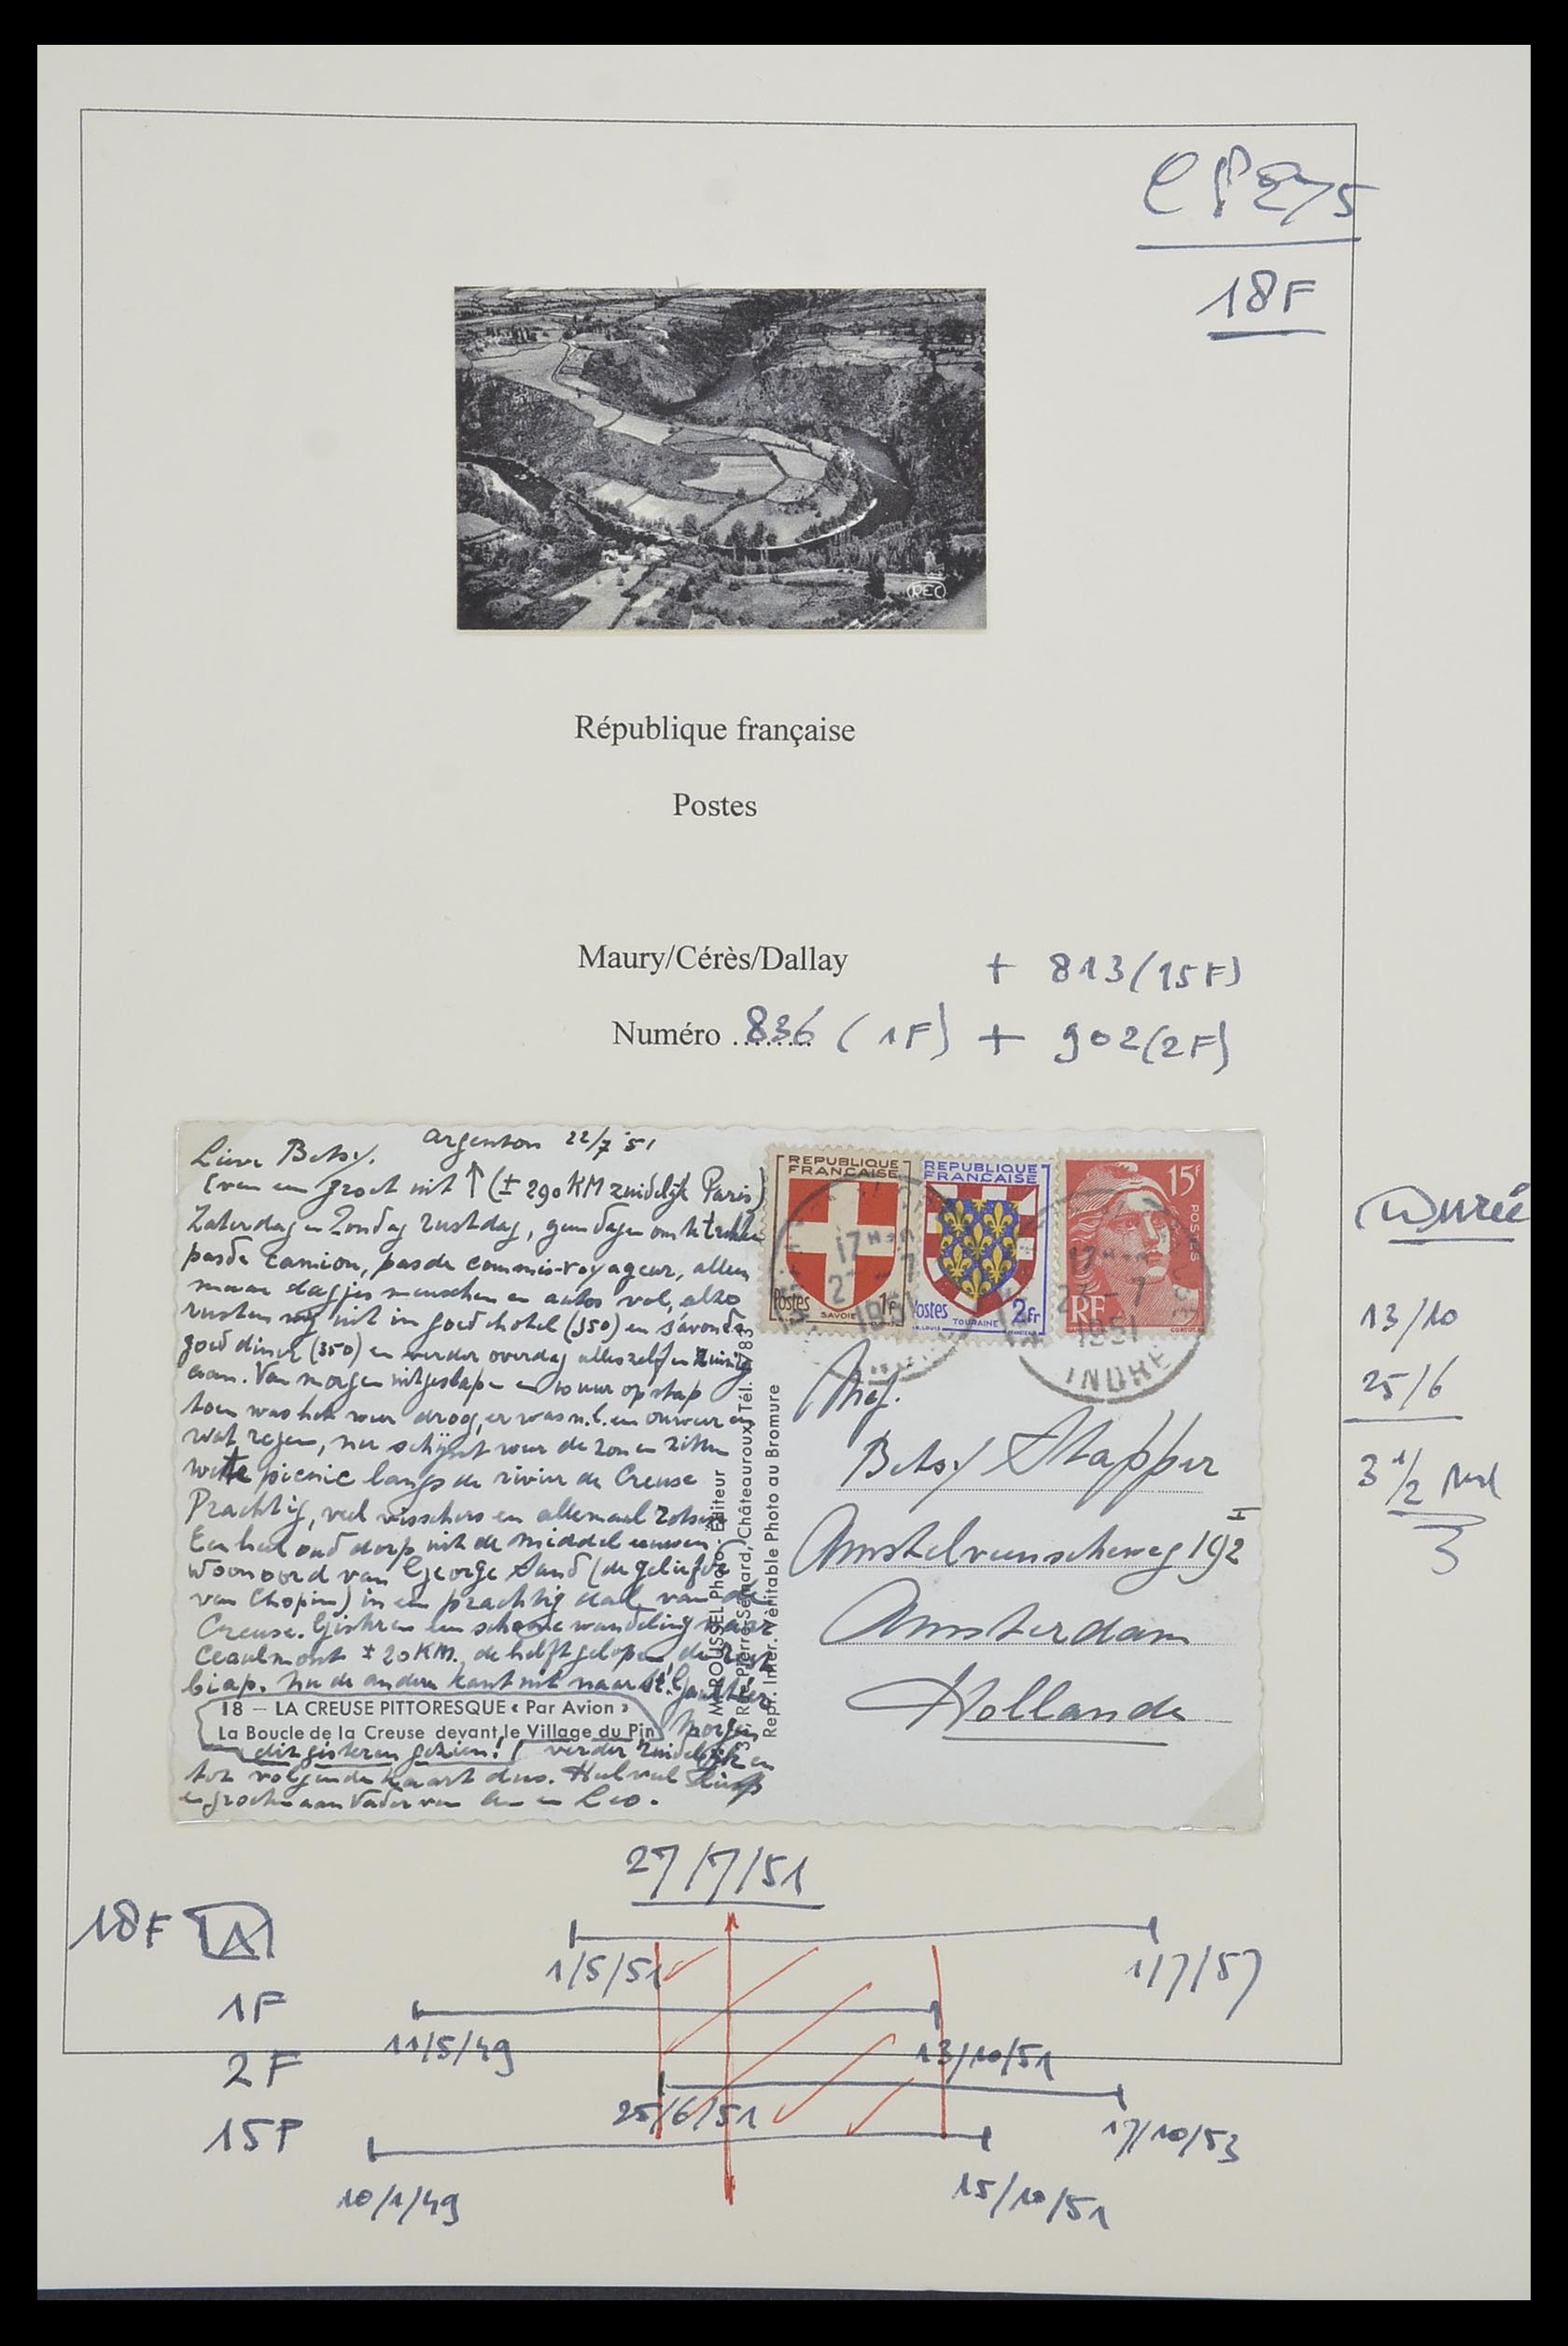 18F
REC
République française
Postes
Maury/Cérès/Dallay + 813 (15F)
Numéro ........ 836 (1F) + 902 (2F)
argenton 22/7 '51
Lieve Betsy.
(van een groet uit ↑ (± 290 KM zuidelijk Paris)
Zaterdag en Zondag rustdag, geen dagen om te trekken
pas de camion, pas de commis-voyageur, alleen
maar dagjes menschen en autos vol, also
rusten wij uit in goed hotel (350) en s'avonds
goed diner (350) en verder overdag alles zelf en zuinig
aan. Van morgen uitgeslapen en 10 uur op stap
toen was het weer droog, er was n.l. een onweer en
wat regen, nu schijnt weer de zon en zitten
we te picnic langs de rivier de Creuse
Prachtig, veel visschers en allemaal rotsen
Een heel oud dorp uit de middeleeuwen
woonoord van George Sand (de geliefde
van Chopin) in een prachtig dal van de
Creuse. Gisteren een schone wandeling naar
Ceaulmont ± 20 KM. de helft gelopen de rest
liap. Nu de andere kant uit naar St. Gaultier
18 — LA CREUSE PITTORESQUE « Par Avion »
La Boucle de la Creuse devant le Village du Pin
Morgen
dit gisteren gezien! verder zuidelijk en
tot volgende kaart dus. Heel veel liefs
en groeten aan Vader van en Leo.
MAROUSSEL Photo - Éditeur
3, Rue Pierre-Semard, Châteauroux, Tél. 783
Repr. Inter. Véritable Photo au Bromure
REPUBLIQUE
FRANÇAISE
Postes 1F
SAVOIE
REPUBLIQUE
FRANÇAISE
Postes 2Fr
TOURAINE
15F
POSTES
RF
17H
27-7
1951
17H
27-7
1951
INDRE
Mej.
Betsy Stapper
Amstelveenscheweg 192 I
Amsterdam
Hollande
Durée
13/10
25/6
3 1/2
3
27/7/51
18F
1/5/51 1/7/57
1F
11/5/49 13/10/51
2F
25/6/51 17/10/53
15F
10/1/49 15/10/51